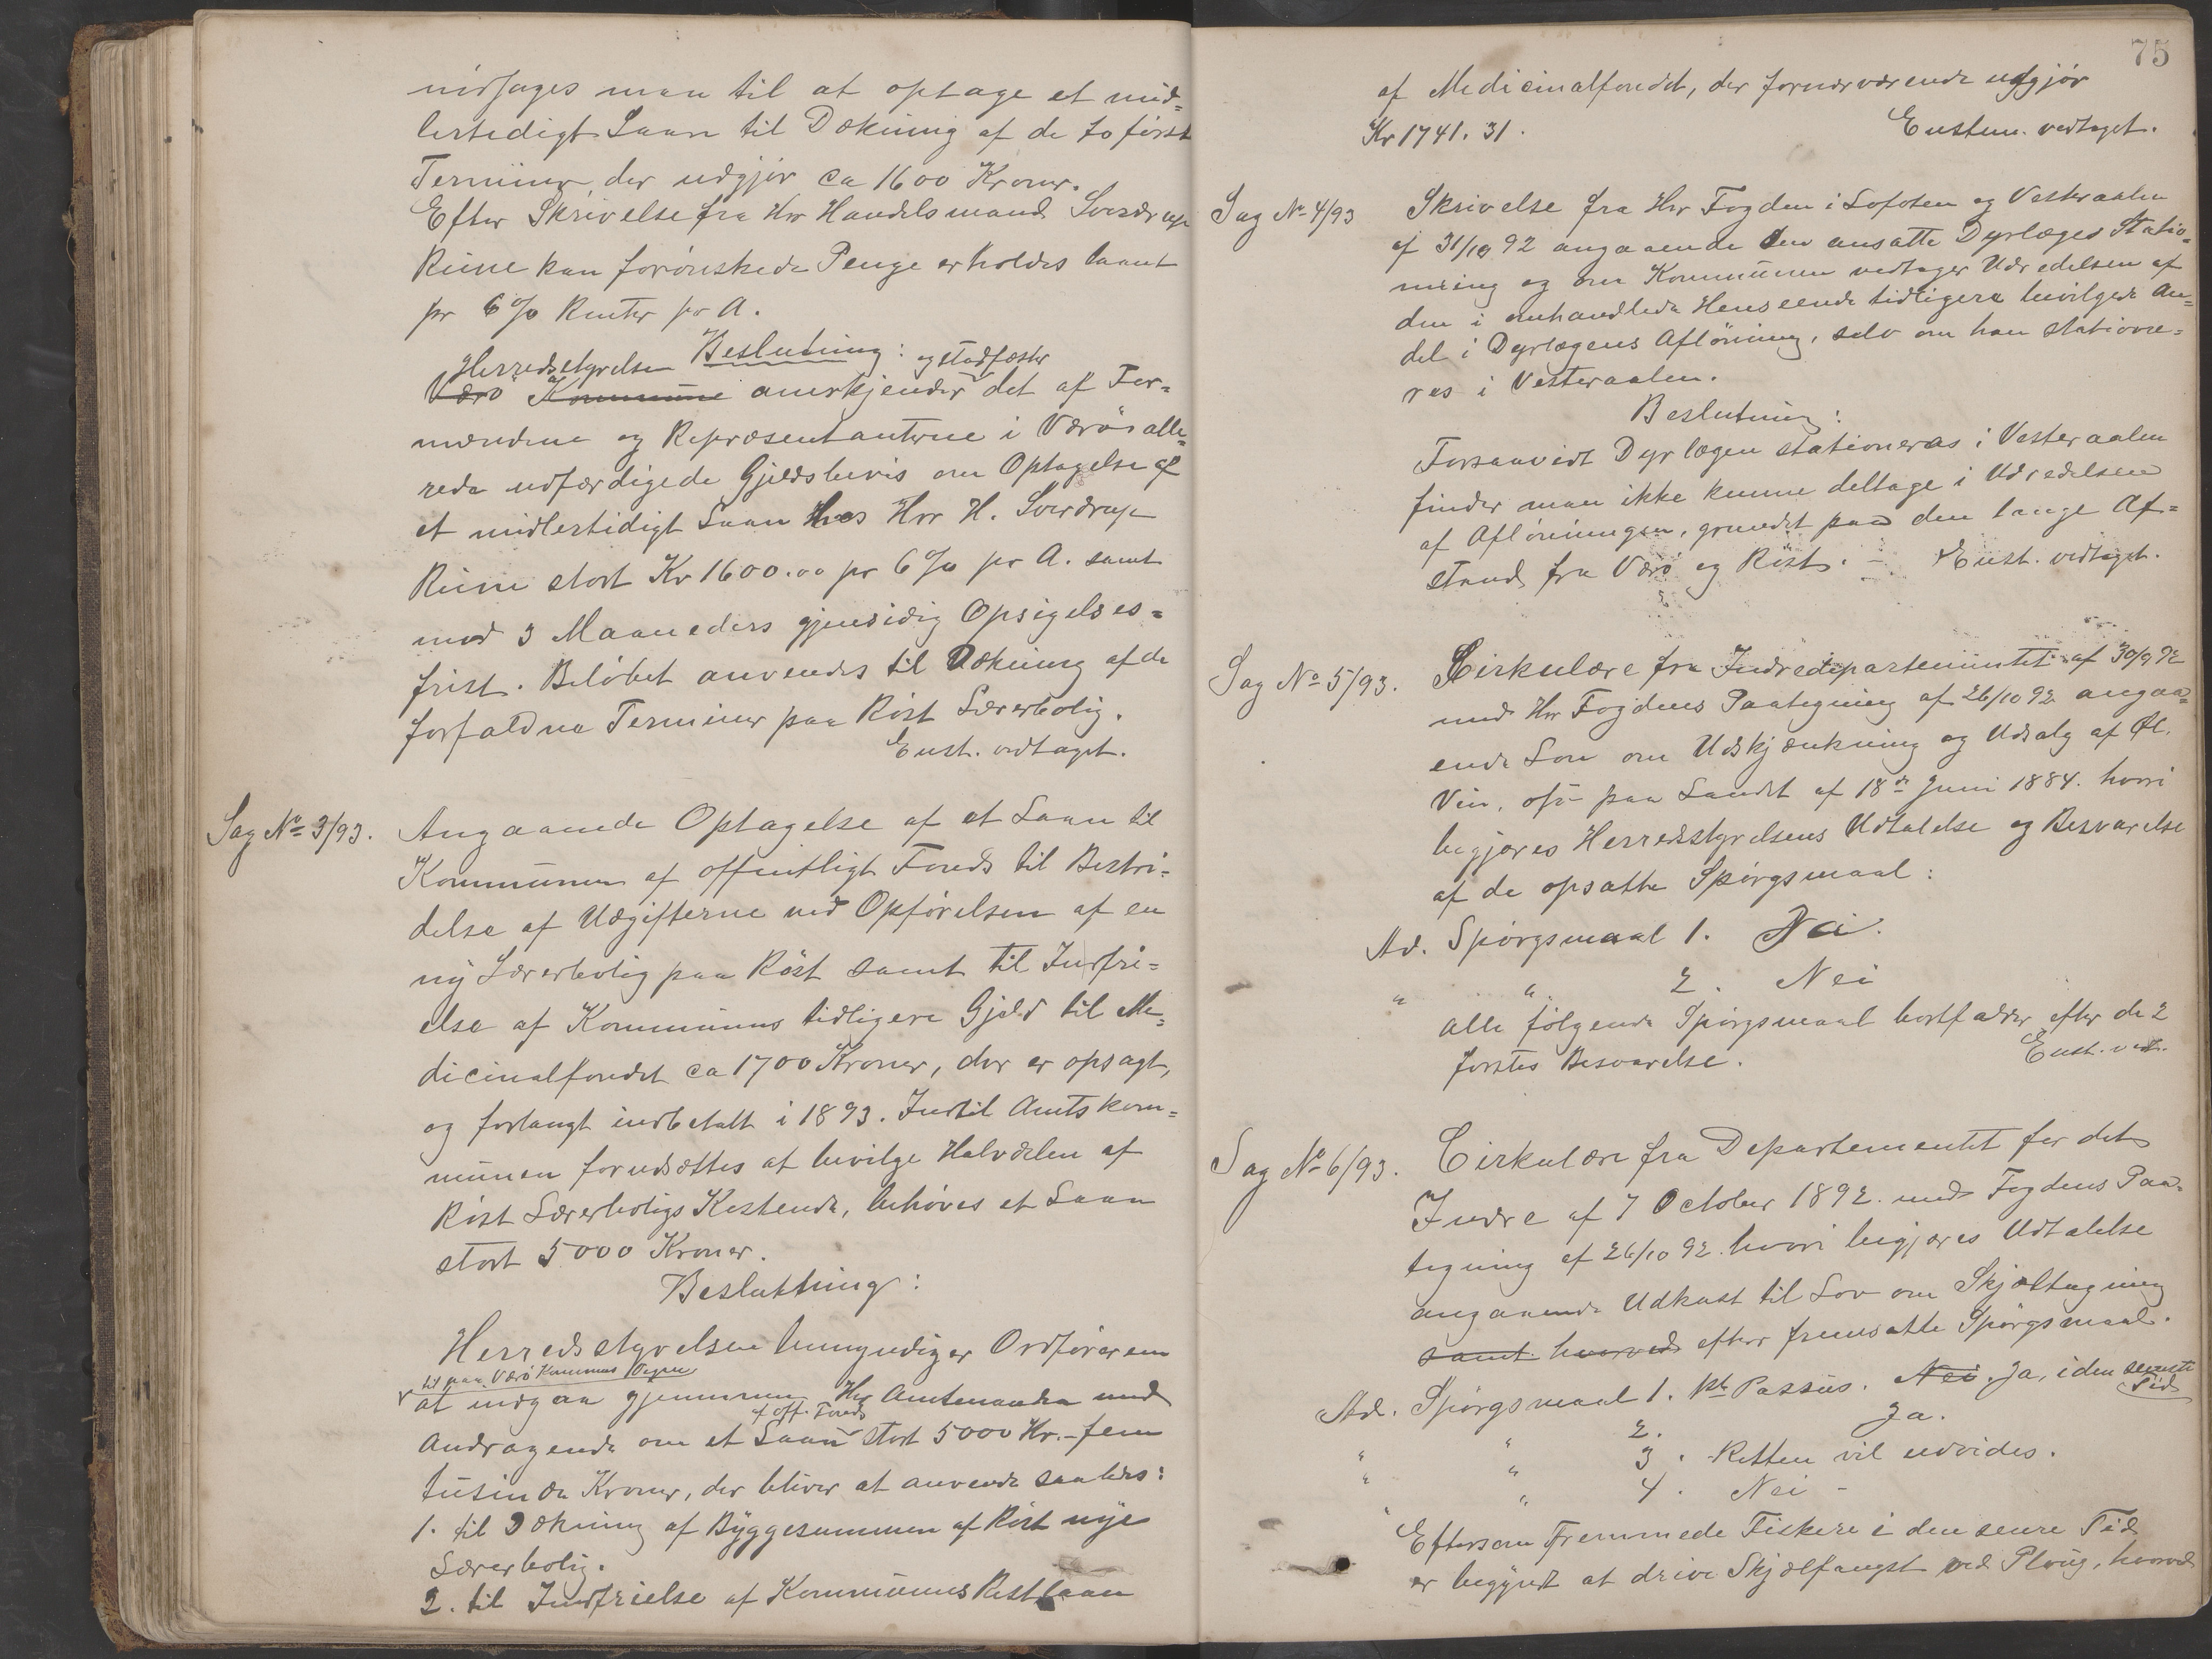 nödsages man til at optage et mid=
lertidigt Laan til Dækning af de to först
Terminer, der udgjör ca 1600 Kroner.
Efter Skrivelse fra Hrr Handelsmand Sverdrup
Reine kan forönskede Penge erholdes laant
pr 6 % Renter pr A.
Beslutning:
Herredsstyrelsen og stadfæster
Værö Kommune anerkjender det af For=
mændene og Repræsentanterne i Værö alle=
rede udfærdigede Gjeldsbevis om Optagelse af
et midlertidigt Laan hos Hrr H. Sverdrup
Reine stort Kr 1600.00 pr 6 % pr A. samt
med 3 Maaneders gjensidig Opsigelses=
frist. Belöbet anvendes til Dækning af de
forfaldne Terminer paa Röst Lærerbolig.
Enst. vedtaget.
Sag No 3/93. Angaaende Optagelse af et Laan til
Kommunen af offentligt Fonds til Bestri=
delse af Udgifterne ved Opförelsen af en
ny Lærerbolig paa Röst samt til Indfri=
else af Kommunens tidligere Gjeld til Me=
dicinalfondet ca 1700 Kroner, der er opsagt,
og forlangt indbetalt i 1893. Indtil Amtskom=
munen forudsættes at bevilge Halvdelen af
Röst Lærerboligs Kostende, behöves et Laan
stort 5000 Kroner.
Beslutning:
Herredsstyrelsen bemyndiger Ordföreren
til paa Værö Kommunes Vegne
at indgaa gjennem Hrr Amtmanden med
af off. Fonds
Andragende om et Laan stort 5000 Kr. - fem
tusinde Kroner, der bliver at anvende saaledes:
1. til Dækning af Byggesummen af Röst nye
Lærerbolig.
2. til Indfrielse af Kommunens Restlaan
75
af Medicinalfondet, der fornærværende udgjör
Kr 1741.31. Enstem. vedtaget.
Sag No 4/93 Skrivelse fra Hrr Fogden i Lofoten og Vesteraalen
af 31/10 92 angaaende den ansatte Dyrlæges Statio=
nering og om Kommunen vedtager Udredelsen af
den i omhandlede Henseende tidligere bevilgede An=
del i Dyrlægens Aflönning, selv om han statione=
res i Vesteraalen.
Beslutning:
Forsaavidt Dyrlægen stationeres i Vesteraalen
finder man ikke kunne deltage i Udredelsen
af Aflönningen, grundet paa den lange Af=
stand fra Værö og Röst. - Enst. vedtaget.
Sag No 5/93. Cirkulære fra Indredepartementet af 30/9 92
med Hrr Fogdens Paategning af 26/10 92 angaa=
ende Lov om Udskjænkning og Udsalg af Øl,
Vin, osv paa Landet af 18de Juni 1884. hvori
begjæres Herredsstyrelsens Udtalelse og Besvarelse
af de opsatte Spörgsmaal:
Ad. Spörgsmaal 1. Nei.
" " 2. Nei
Alle fölgende Spörgsmaal bortfalder efter de 2
förstes Besvarelse. Enst. ved.
Sag No 6/93. Cirkulære fra Departementet for det
Indre af 7 October 1892. med Fogdens Paa=
tegning af 26/10 92. hvori begjæres Udtalelse
angaaende Udkast til Lov om Skjæltagning
samt hvorved efter fremsatte Spörgsmaal.
Ad. Spörgsmaal 1. Passus. Nei. Ja, i den seneste
Tid
" " 2. Ja.
" " 3. Retten vil udvides.
" " 4. Nei -
Eftersom Fremmede Fiskere i den senere Tid
er begyndt at drive Skjælfangst ved Ploug, hvorved